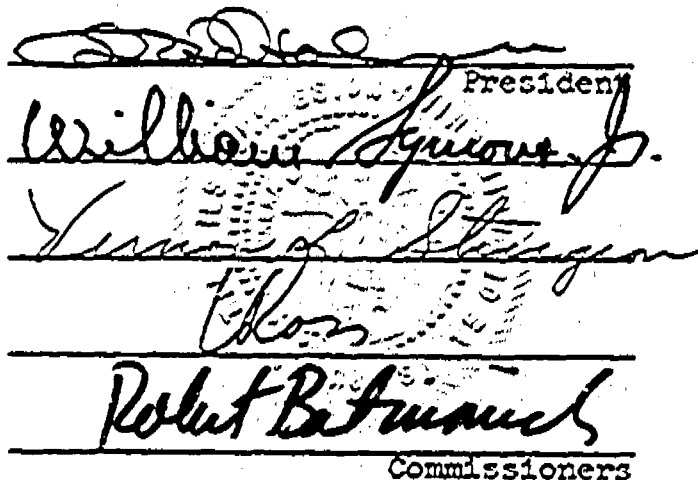 President
William Symons, Jr.
Vernon L. Sturgeon
Ross
Robert Batinovich
Commissioners